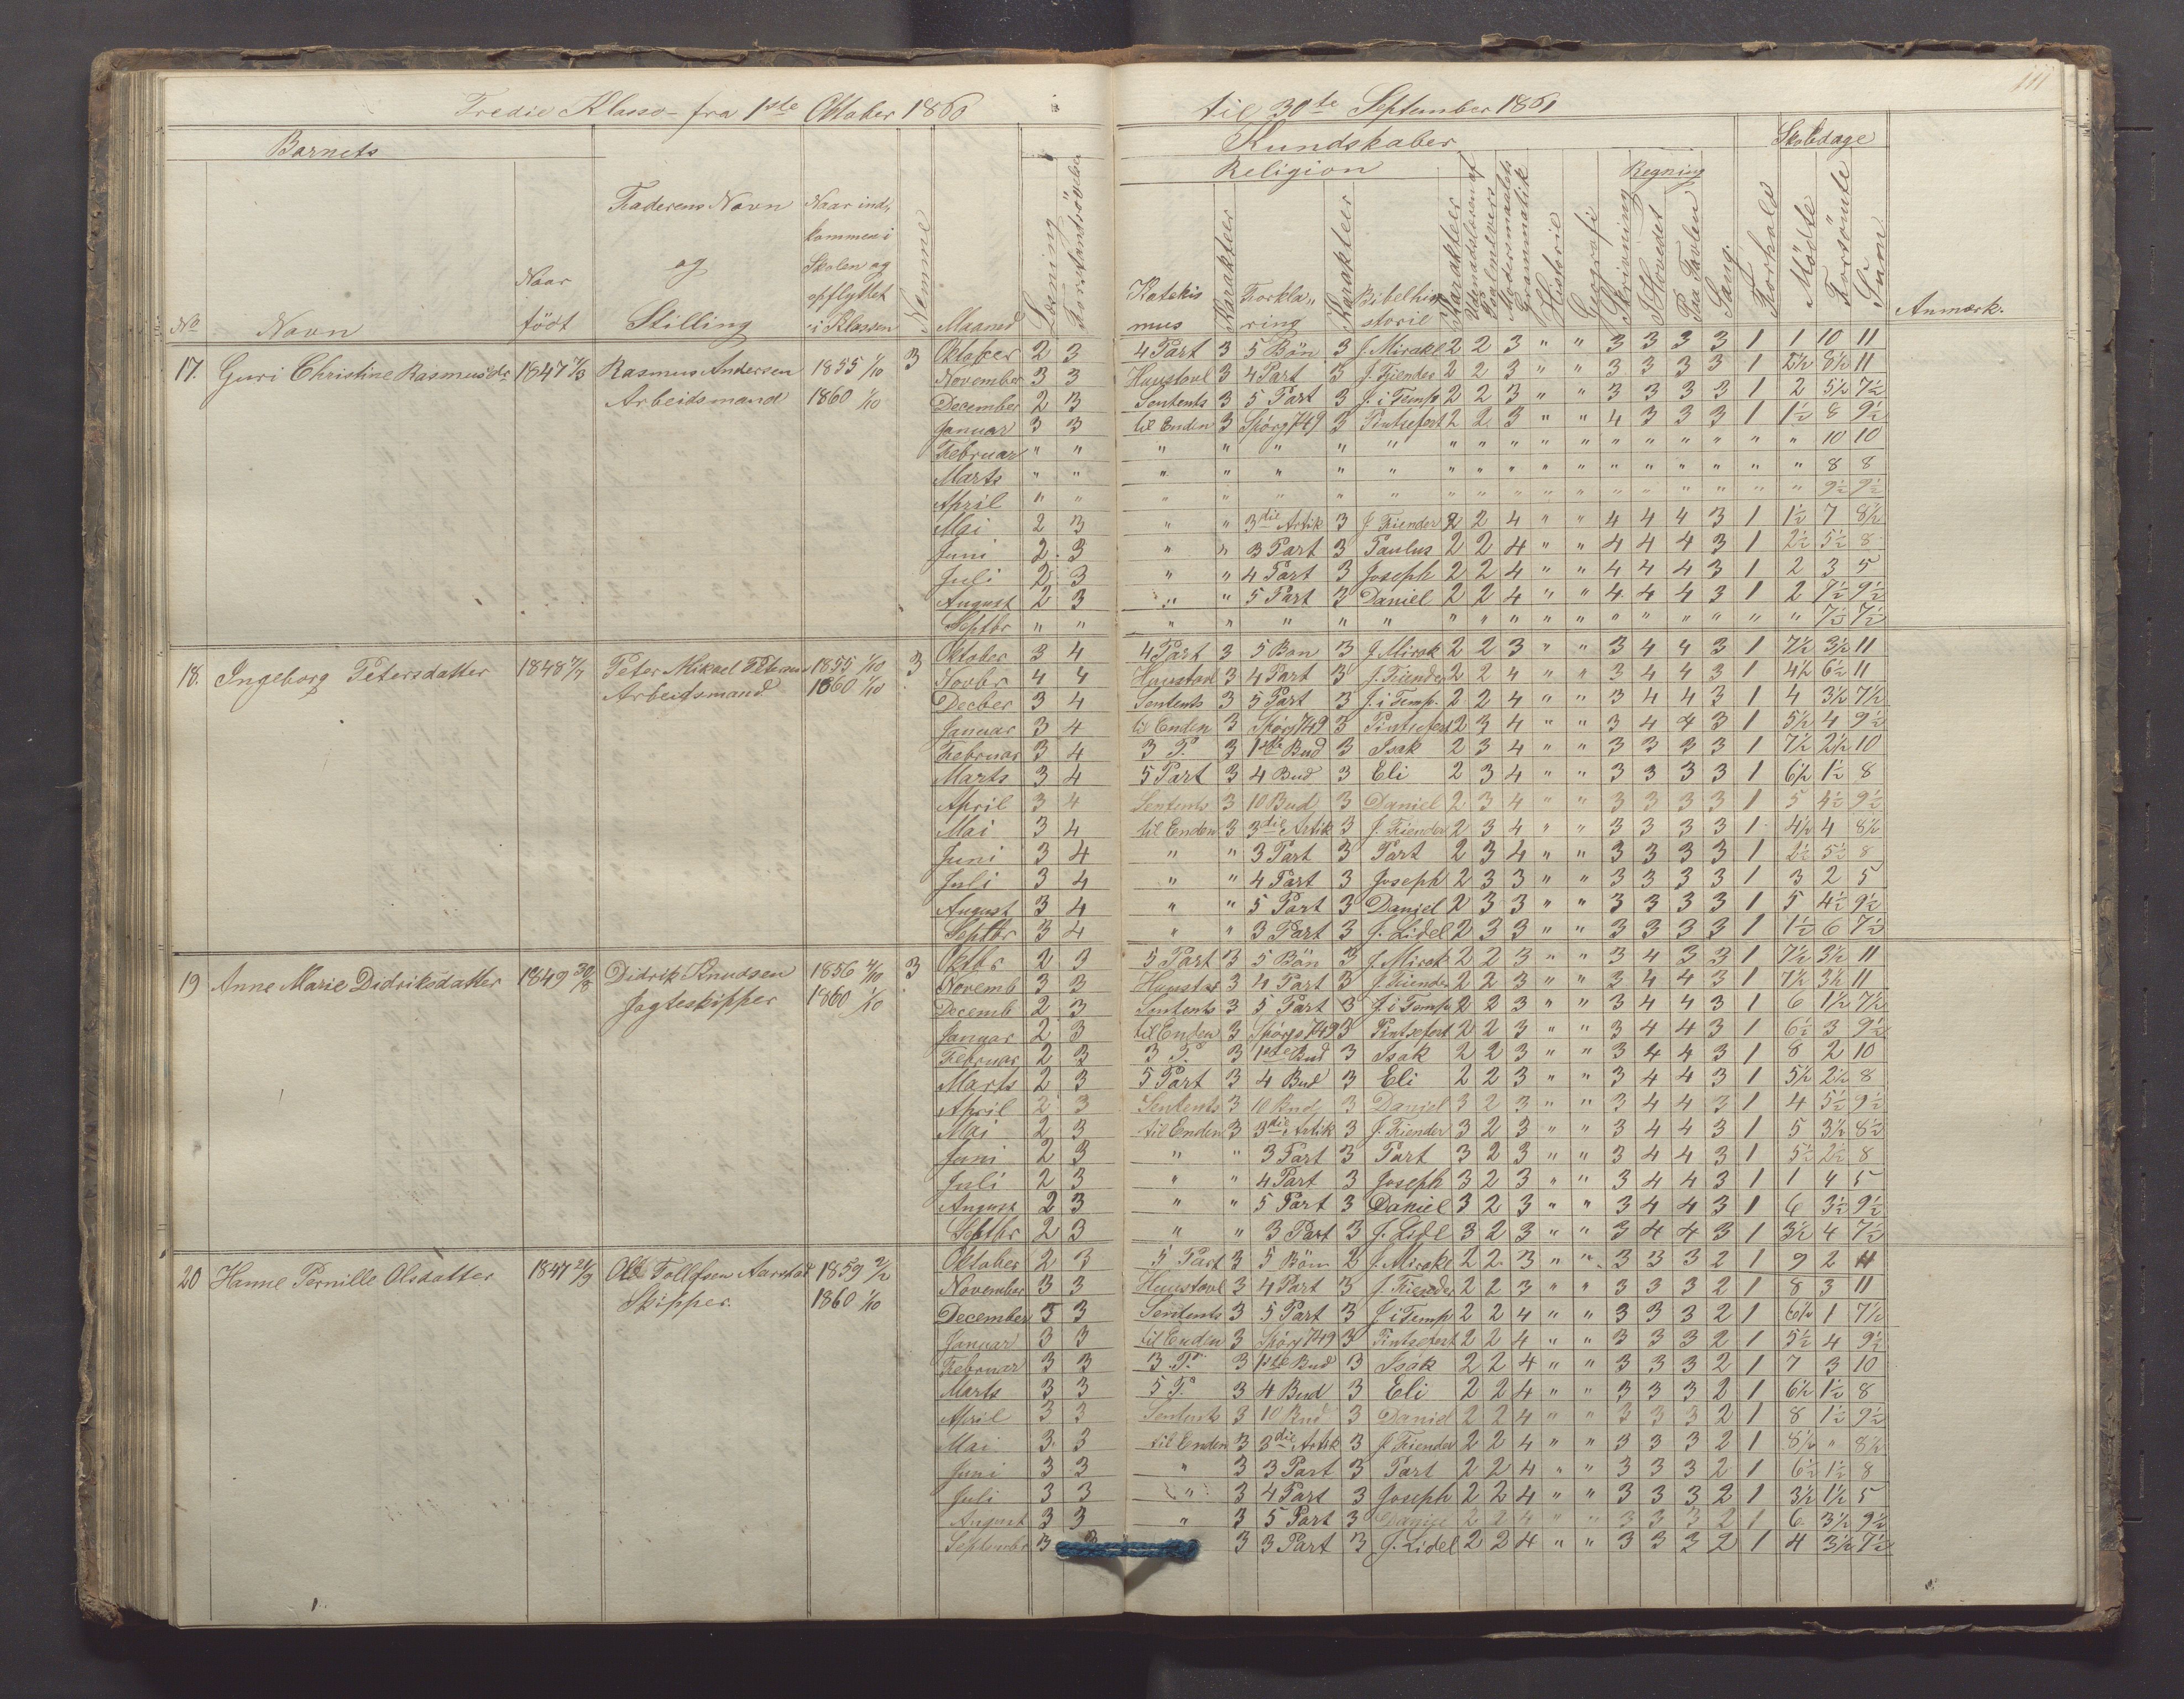 111
Tredie Klasse fra 1ste Oktober 1860 til 30te September 1861
Barnets Kundskaber Skoledage
Religion Regning
No Navn Naar født Faderens Navn og Stilling Naar ind, kommen i Skolen og opflyttet i Klassen Nemme Maaned Læsning Forstandsøvelse Katekis mus Karakteer Forkla, ring Karakteer Bibelhi storie Karakteer Udenadslæsen af Psalmevers Modersmaalets Grammatik Historie Geografi Skrivning I Hovedet Paa Tavlen Sang Forhold Mødte Forsömte Sum Anmærk.
17. Guri Christine Rasmusdr 1847 Rasmus Andersen 1855 1/10 3 Oktober 2 3 4 Part 3 5 Bön 3 J. Mirakl 2 2 3 " " 3 3 3 3 1 1 10 11
Arbeidsmand 1860 1/10 November 3 3 Huustavl 3 4 Part 3 J. Fiender 2 2 3 " " 3 3 3 3 1 2½ 8½ 11
December 2 3 Sentents 3 5 Part 3 J. i Temp 2 2 3 " " 3 3 3 3 1 2 5½ 7½
Januar 3 3 til Enden 3 Spörg 749 3 Pintsefest 2 2 3 " " 4 3 3 3 1 1½ 8 9½
Februar " " " " " " " " " " " " " " " " " " 10 10
Marts " " " " " " " " " " " " " " " " " " 8 8
April " " " " " " " " " " " " " " " " " " 9½ 9½
Mai 2 3 " " 3die Artik 3 J. Fiender 2 2 4 " " 4 4 4 3 1 1½ 7 8½
Juni 2 3 " " 3 Part 3 Paulus 2 2 4 " " 4 4 4 3 1 2½ 5½ 8
Juli 2 3 " " 4 Part 3 Joseph 2 2 4 " " 4 4 4 3 1 2 3 5
August 2 3 " " 5 Part 3 Daniel 2 2 4 " " 4 4 4 3 1 2 7½ 9½
Septbr " " " " " " " " " " " " " " " " " " 7½ 7½
18. Ingeborg Petersdatter 1848 Peter Mikael Petersen 1855 1/10 3 Oktober 3 4 4 Part 3 5 Bon 3 J. Mirak 2 2 3 " " 3 4 4 3 1 7½ 3½ 11
Arbeidsmand 1860 1/10 Novbr 4 4 Huustavl 3 4 Part 3 J. Fiender 2 2 4 " " 3 4 4 3 1 4½ 6½ 11
Decber 3 4 Sentents 3 5 Part 3 J. i Temp. 2 2 4 " " 3 4 4 3 1 4 3½ 7½
Januar 3 4 til Enden 3 Spörg 749 3 Pintsefest 2 3 4 " " 3 4 4 3 1 5½ 4 9½
Februar 3 4 3 P. 3 1ste Bud 3 Isak 2 3 4 " " 3 3 3 3 1 7½ 2½ 10
Marts 3 4 5 Part 3 4 Bud 3 Eli 2 3 4 " " 3 3 3 3 1 6½ 1½ 8
April 3 4 Sentents 3 10 Bud 3 Daniel 2 3 4 " " 3 3 3 3 1 5 4½ 9½
Mai 3 4 til Enden 3 3die Artik 3 J. Fiender 2 3 4 " " 3 3 3 3 1 4½ 4 8½
Juni 3 4 " " 3 Part 3 Part 2 3 4 " " 3 3 3 3 1 2½ 5½ 8
Juli 3 4 " " 4 Part 3 Joseph 2 3 3 " " 3 3 3 3 1 3 2 5
August 3 4 " " 5 Part 3 Daniel 2 3 3 " " 3 3 3 3 1 5 4½ 9½
Septbr 3 4 " " 3 Part 3 J. Lidel 2 3 3 " " 3 3 3 3 1 1½ 6 7½
19 Anne Marie Didriksdatter 1849 30/8 Didrik Knudsen 1856 3 Oktbr 2 3 5 Part 3 5 Bön 3 J. Mirak 2 2 3 " " 3 4 3 3 1 7½ 3½ 11
Jagteskipper 1860 1/10 Novemb 3 3 Huustav 3 4 Part 3 J. Fiender 2 2 3 " " 3 4 4 3 1 7½ 3½ 11
Decemb 2 3 Sentents 3 5 Part 3 J. i Temp 2 2 3 " " 3 4 4 3 1 6 1½ 7½
Januar 2 3 til Enden 3 Spörg 749 3 Pintsefest 2 2 3 " " 3 4 4 3 1 6½ 3 9½
Februar 2 3 3 P. 3 1ste Bud 3 Isak 2 2 3 " " 3 4 4 3 1 8 2 10
Marts 2 3 5 Part 3 4 Bud 3 Eli 2 2 3 " " 3 4 4 3 1 5½ 2½ 8
April 2 3 Sentents 3 10 Bud 3 Daniel 3 2 3 " " 3 4 4 3 1 4 5½ 9½
Mai 2 3 til Enden 3 3die Artik 3 J. Fiender 3 2 3 " " 3 4 4 3 1 5 3½ 8½
Juni 2 3 " " 3 Part 3 Part 3 2 3 " " 3 4 4 3 1 5½ 2½ 8
Juli 2 3 " " 4 Part 3 Joseph 3 2 3 " " 3 4 4 3 1 1 4 5
August 2 3 " " 5 Part 3 Daniel 3 2 3 " " 3 4 4 3 1 6 3½ 9½
Septbr 2 3 " " 3 Part 3 J. Lidl 3 2 3 " " 3 4 4 3 1 3½ 4 7½
20 Hanne Pernille Olsdatter 1847 21/9 Ole Tollefsen Aarstad 1859 2/2 Oktober 2 3 5 Part 3 5 Bön 2 J. Mirakl 2 2 3 " " 3 3 3 2 1 9 2 11
Skipper. 1860 1/10 November 3 3 Huustavl 3 4 Part 3 J. Fiender 2 2 3 " " 3 3 3 2 1 8 3 11
December 3 3 Sentents 3 5 Part 3 J. i Temp 2 2 4 " " 3 3 3 2 1 6½ 1 7½
Januar 3 3 til Enden 3 Spörg 749 3 Pintsefest 2 2 4 " " 3 3 3 2 1 5½ 4 9½
Februar 3 3 3 P. 3 1ste Bud 3 Isak 2 2 4 " " 3 3 3 2 1 7 3 10
Marts 3 3 5 P. 3 4 Bud 3 Eli 2 2 4 " " 3 3 3 2 1 6½ 1½ 8
April 3 3 Sentents 3 10 Bud 3 Daniel 2 2 4 " " 3 3 3 2 1 8 1½ 9½
Mai 3 3 til Enden 3 3die Artik 3 J. Fiender 2 2 4 " " 3 3 3 2 1 8½ " 8½
Juni 3 3 " 3 3 Part 3 Part 2 2 4 " " 3 3 3 2 1 6½ 1½ 8
Juli 3 3 " 3 4 Part 3 Joseph 2 2 4 " " 3 3 3 2 1 3½ 1½ 5
August 3 3 " 3 5 Part 3 Daniel 2 2 4 " " 3 3 3 2 1 6 3½ 9½
September 3 3 3 3 Part 3 J. Lidel 2 2 4 " " 3 3 3 2 1 4 3½ 7½